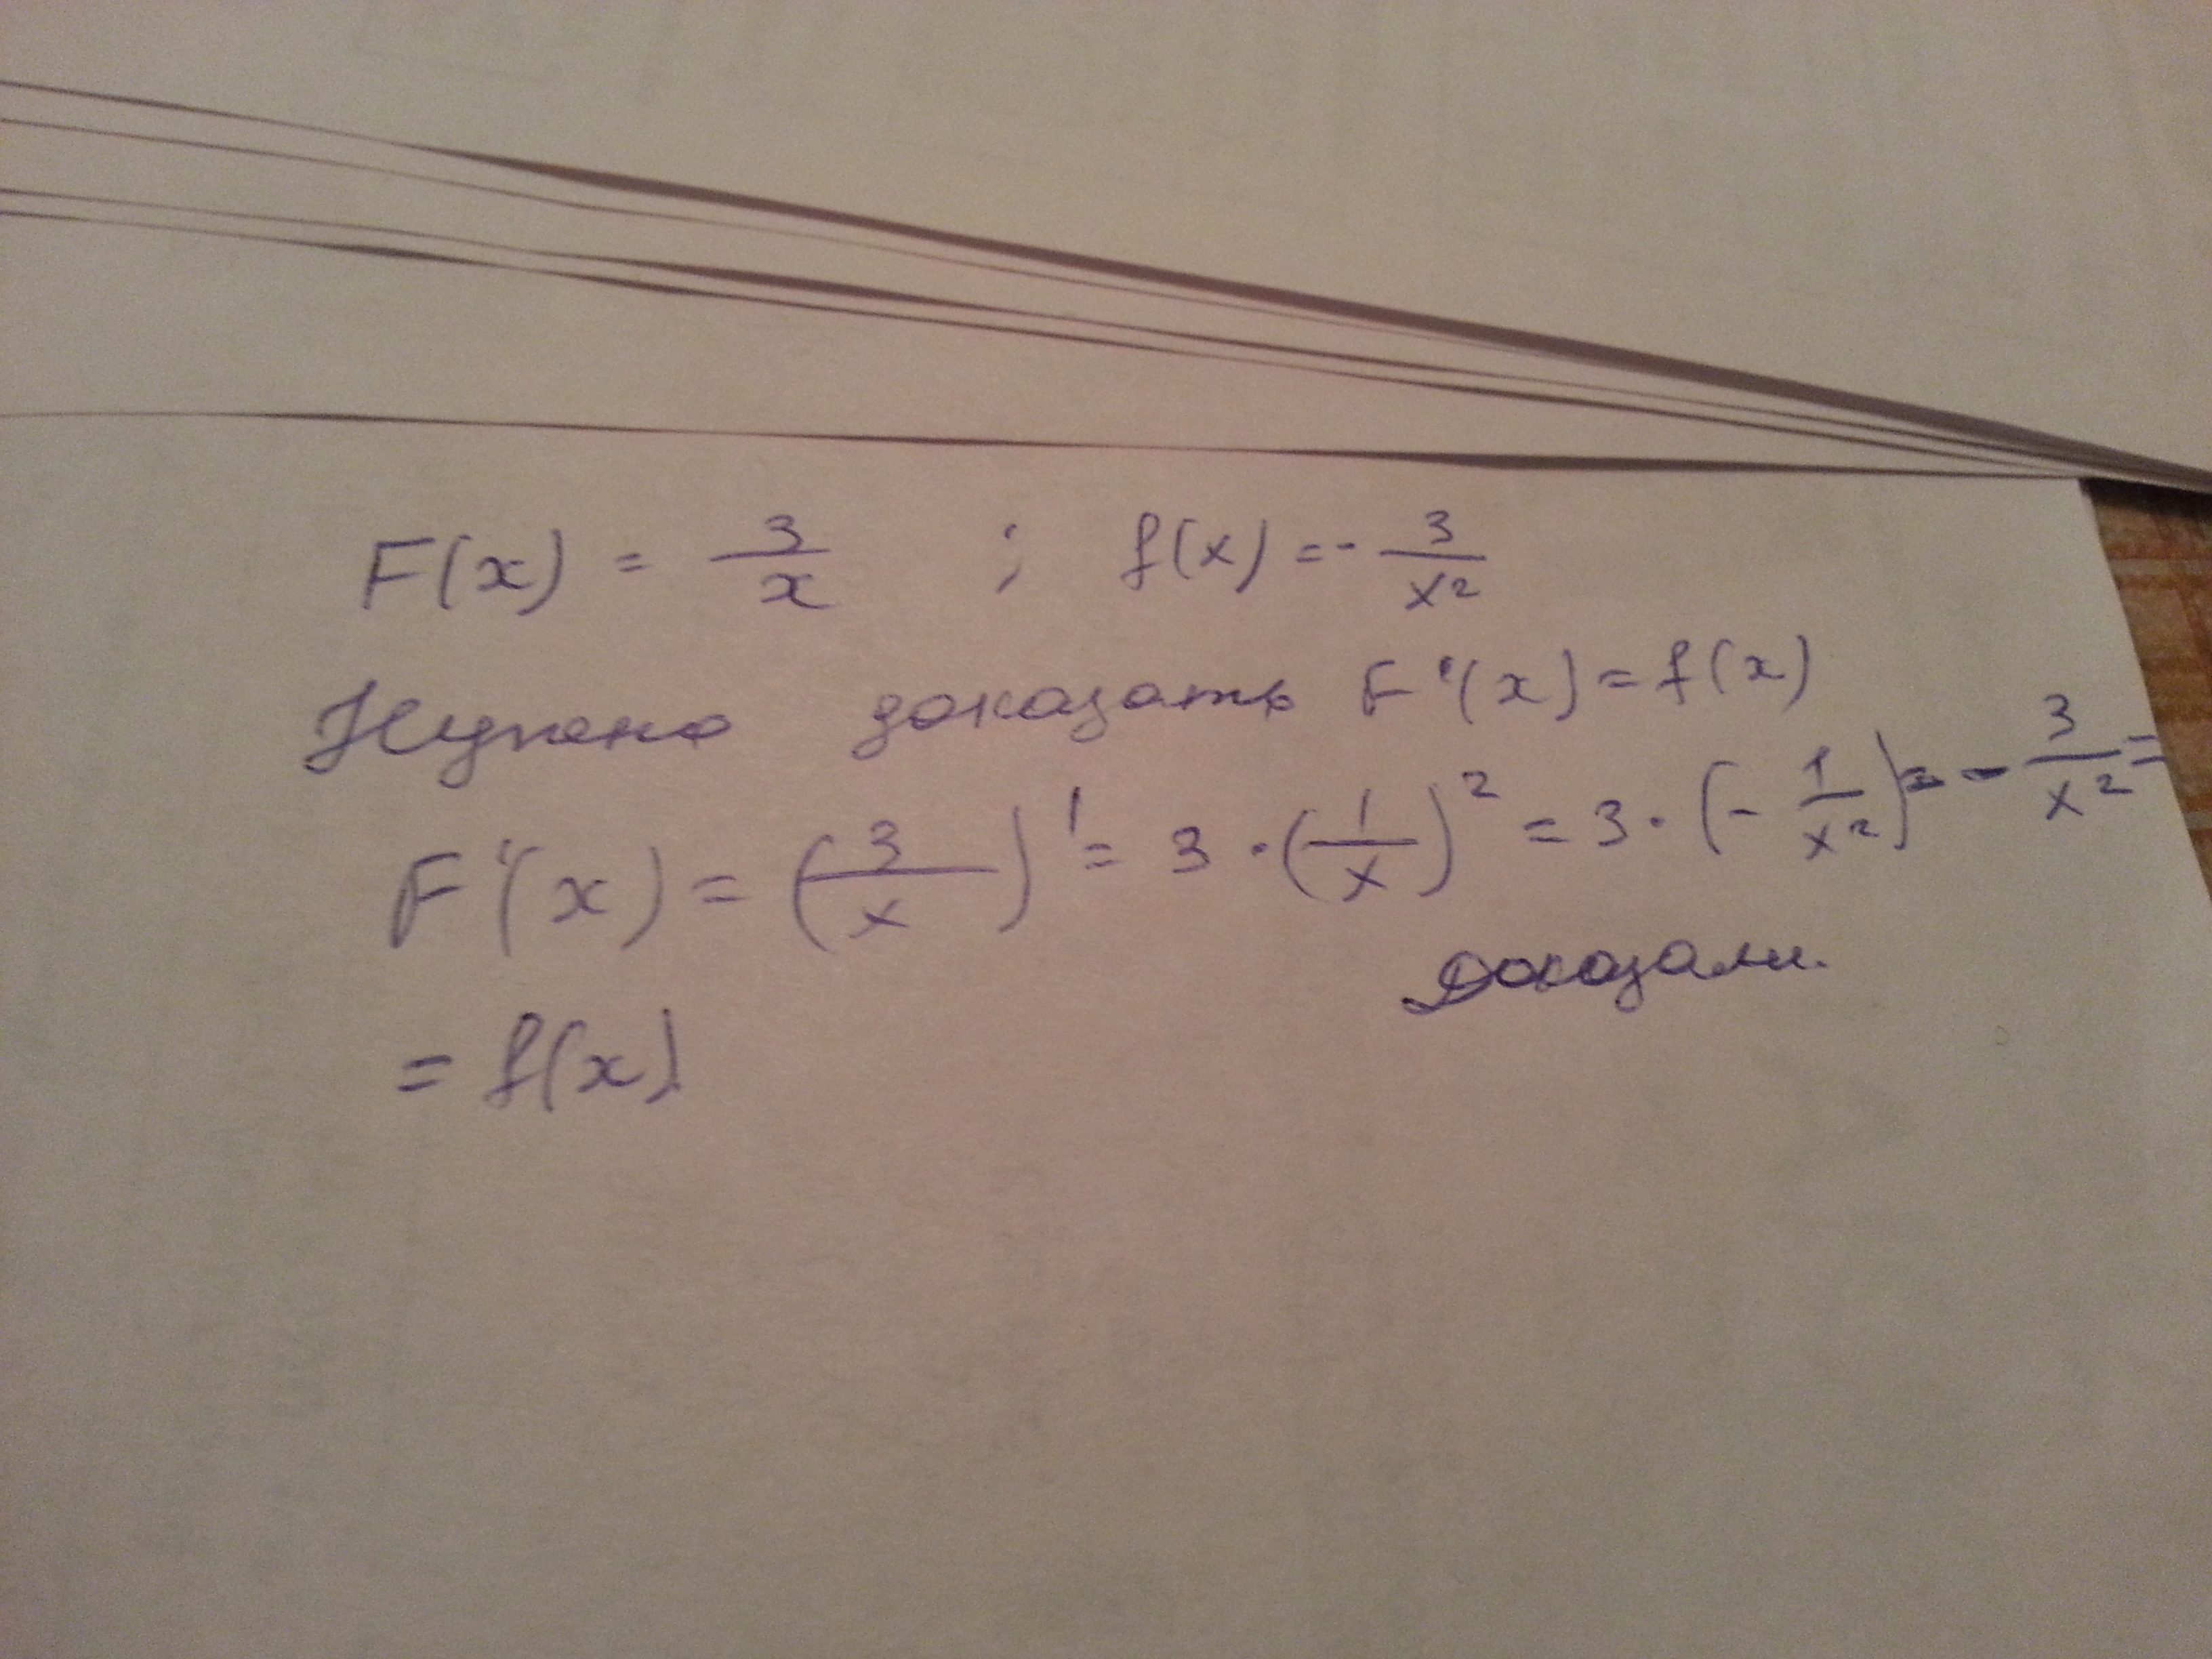 F(x) = 3/x ; f(x) = - 3/x²
Нужно доказать F'(x) = f(x)
F'(x) = (3/x)' = 3 · (1/x)² = 3 · (- 1/x²) = - 3/x² =
= f(x) Доказали.